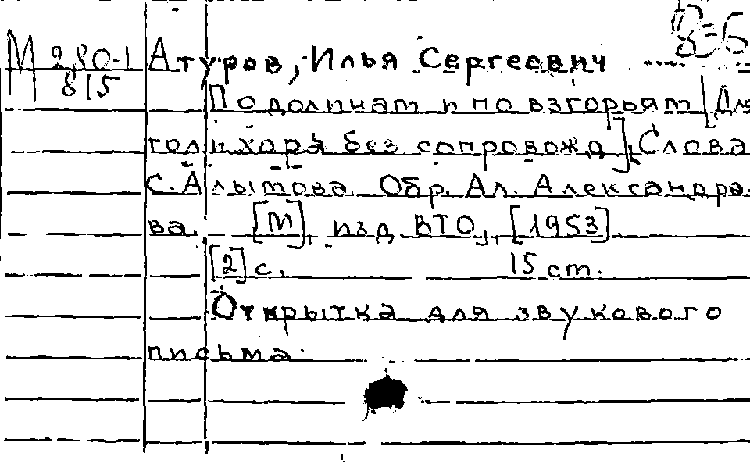 М 2,80-1 Атуров, Илья Сергеевич
8 15
По долинам и по взгорьям [Для
гол и хора без сопровожд]. Слова
С. Алымова. Обр. Ал. Александро-
ва. [М], изд ВТО, [1953]
[2] с. 15 cm.
Открытка для звукового
письма.